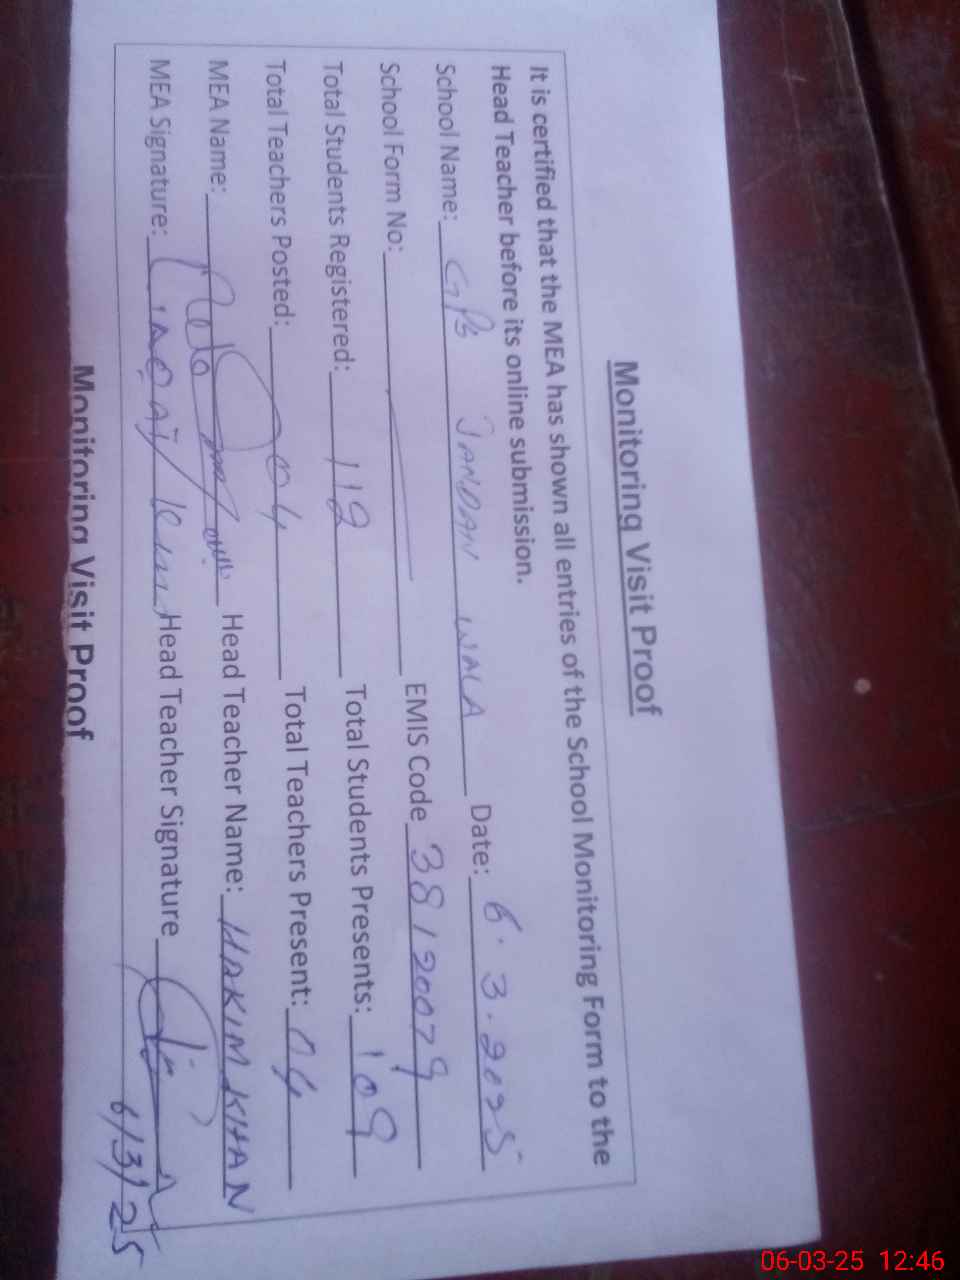 Monitoring Visit Proof
It is certified that the MEA has shown all entries of the School Monitoring Form to the
Head Teacher before its online submission.
School Name: GPS JANDAN WALA Date: 6.3.2025
School Form No: EMIS Code 38120079
Total Students Registered: 112 Total Students Presents: 109
Total Teachers Posted: 04 Total Teachers Present: 04
MEA Name: Head Teacher Name: HAKIM KHAN
MEA Signature: Head Teacher Signature
6/3/25
Monitoring Visit Proof
06-03-25 12:46